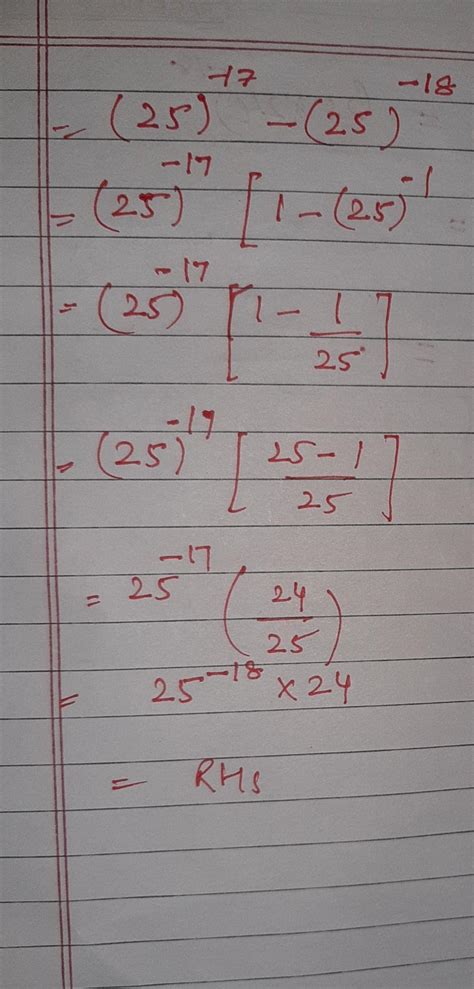 = (25)^-17 - (25)^-18
= (25)^-17 [1 - (25)^-1
= (25)^-17 [1 - 1/25]
= (25)^-17 [25-1/25]
= 25^-17 (24/25)
= 25^-18 × 24
= RHS